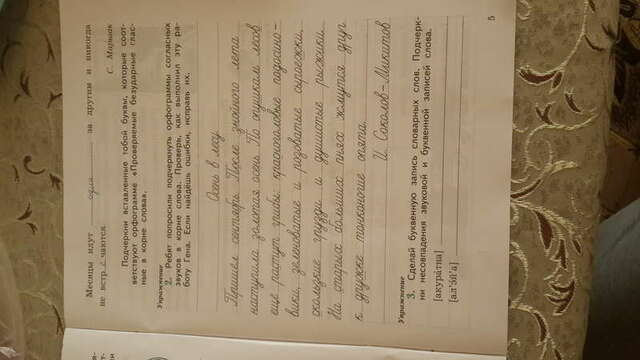 Месяцы идут один за другим и никогда
не встр е чаются.
С. Маршак
Подчеркни вставленные тобой буквы, которые соот-
ветствуют орфограмме «Проверяемые безударные глас-
ные в корне слова».
Упражнение
2. Ребят попросили подчеркнуть орфограммы согласных
звуков в корне слова. Проверь, как выполнил эту ра-
боту Гена. Если найдёшь ошибки, исправь их.
Осень в лесу
Пришёл сентябрь. После знойного лета
наступила золотая осень. По опушкам лесов
ещё растут грибы: красноголовые подосино-
вики, зеленоватые и розоватые сыроежки,
скользкие грузди и душистые рыжики.
На старых больших пнях жмутся друг
к дружке тонконогие опята.
И. Соколов-Микитов
Упражнение
3. Сделай буквенную запись словарных слов. Подчерк-
ни несовпадения звуковой и буквенной записей слова.
[акура́тна]
[ал'э́й'а]
5